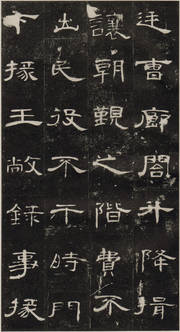 廷曹廊閣升降揖
讓朝覲之階費不
出民役不干時門
下掾王敞錄事掾